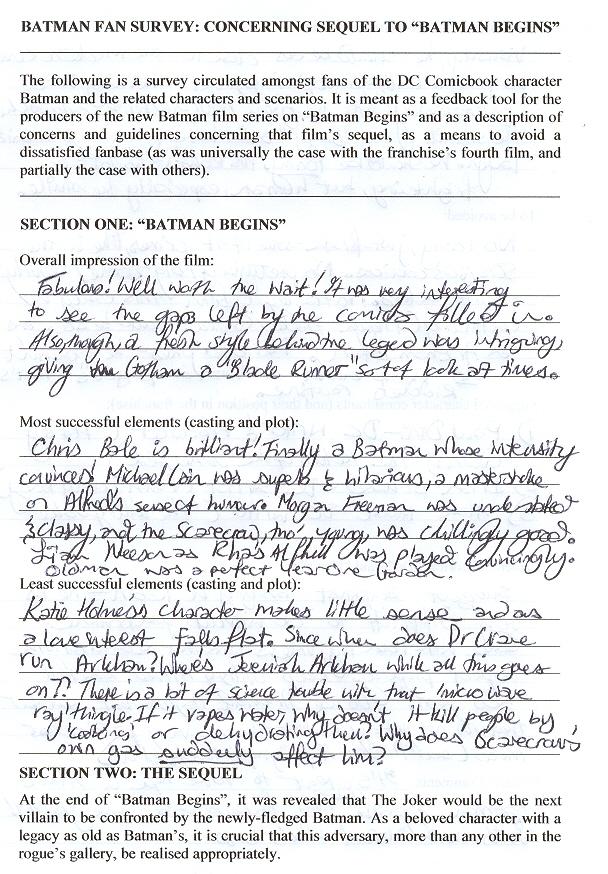 BATMAN FAN SURVEY: CONCERNING SEQUEL TO “BATMAN BEGINS”
The following is a survey circulated amongst fans of the DC Comicbook character
Batman and the related characters and scenarios. It is meant as a feedback tool for the
producers of the new Batman film series on “Batman Begins” and as a description of
concerns and guidelines concerning that film’s sequel, as a means to avoid a
dissatisfied fanbase (as was universally the case with the franchise’s fourth film, and
partially the case with others).
SECTION ONE: “BATMAN BEGINS”
Overall impression of the film:
Fabulous! Well worth the wait! It was very interesting
to see the gaps left by the comics filled in.
Also, though, a fresh style behind the legend was intriguing,
giving Gotham a "Blade Runner" sort of look at times.
Most successful elements (casting and plot):
Chris Bale is brilliant! Finally a Batman whose intensity
convinces! Michael Cain was superb & hilarious, a masterstroke
on Alfred's sense of humour. Morgan Freeman was understated
& classy, and the Scarecrow, tho' young, was chillingly good.
Liam Neeson as Rha's Al Ghul was played convincingly.
Oldman was a perfect Year One Gordon.
Least successful elements (casting and plot):
Katie Holmes's character makes little sense and as
a love interest falls flat. Since when does Dr Crane
run Arkham? Where's Jeremiah Arkham while all this goes
on? There is a bit of science trouble with that 'microwave
ray' thingie. If it vapes water, why doesn't it kill people by
'cooking' or dehydrating them? Why does Scarecrow's
own gas suddenly affect him?
SECTION TWO: THE SEQUEL
At the end of “Batman Begins”, it was revealed that The Joker would be the next
villain to be confronted by the newly-fledged Batman. As a beloved character with a
legacy as old as Batman’s, it is crucial that this adversary, more than any other in the
rogue’s gallery, be realised appropriately.